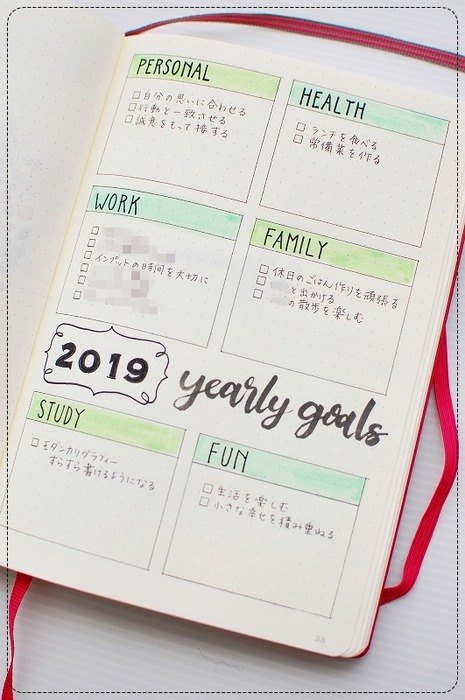 PERSONAL
□自分の思いに合わせる
□行動と一致させる
□誠意をもって接する
HEALTH
□ランチを食べる
□常備菜を作る
WORK
□
□
□インプットの時間を大切に
□
□
FAMILY
□休日のごはん作りを頑張る
□と出かける
□の散歩を楽しむ
2019 yearly goals
STUDY
□モダンカリグラフィー
すらすら書けるようになる
FUN
□生活を楽しむ
□小さな幸せを積み重ねる
33